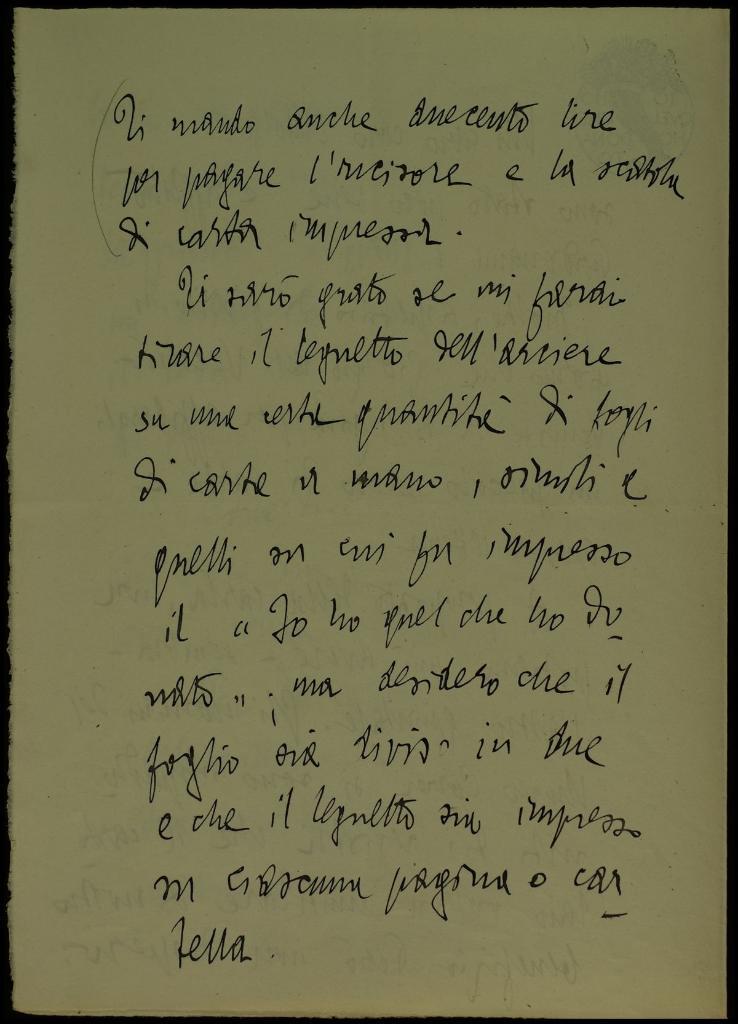 (Ti mando anche duecento lire
per pagare l'incisore e la scatola
di carta impressa.
Ti sarò grato se mi farai
tirare il legnetto dell'arciere
su una certa quantità di fogli
di carta a mano, simili a
quelli su cui fu impresso
il "Io ho quel che ho do-
nato"; ma desidero che il
foglio sia diviso in due
e che il legnetto sia impresso
su ciascuna pagina o car-
tella.